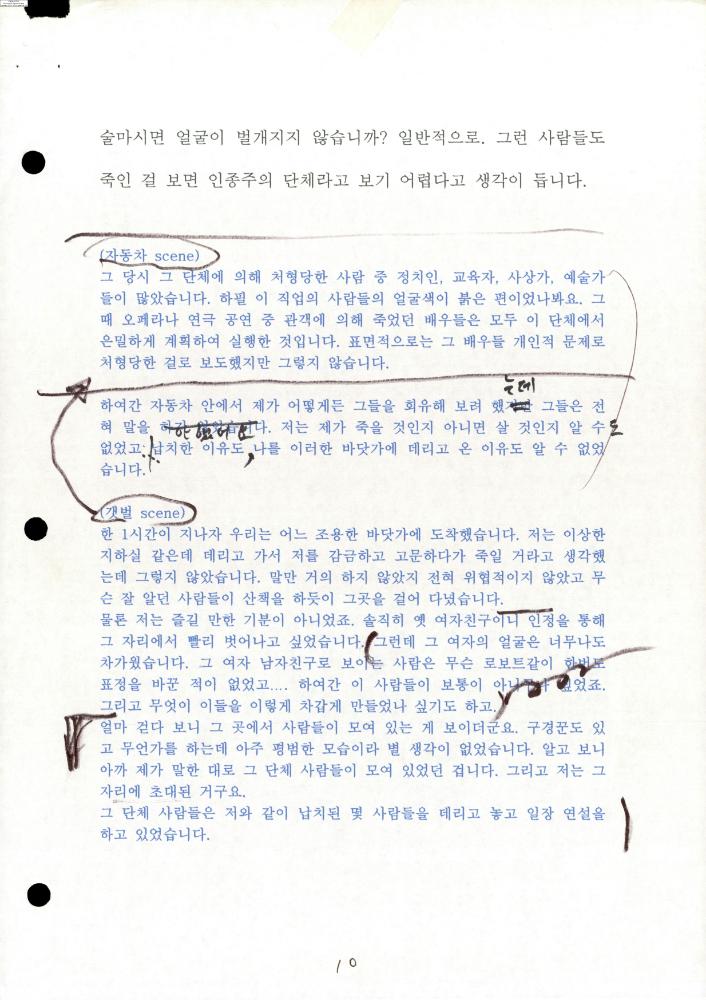 술마시면 얼굴이 벌개지지 않습니까? 일반적으로. 그런 사람들도
죽인 걸 보면 인종주의 단체라고 보기 어렵다고 생각이 듭니다.
(자동차 scene)
그 당시 그 단체에 의해 처형당한 사람 중 정치인, 교육자, 사상가, 예술가
들이 많았습니다. 하필 이 직업의 사람들의 얼굴색이 붉은 편이었나봐요. 그
때 오페라나 연극 공연 중 관객에 의해 죽었던 배우들은 모두 이 단체에서
은밀하게 계획하여 실행한 것입니다. 표면적으로는 그 배우들 개인적 문제로
처형당한 걸로 보도했지만 그렇지 않습니다.
는데
하여간 자동차 안에서 제가 어떻게든 그들을 회유해 보려 했 그들은 전
혀 말을 다. 저는 제가 죽을 것인지 아니면 살 것인지 알 수도
없었고, 납치한 이유도, 나를 이러한 바닷가에 데리고 온 이유도 알 수 없었
습니다.
(갯벌 scene)
한 1시간이 지나자 우리는 어느 조용한 바닷가에 도착했습니다. 저는 이상한
지하실 같은데 데리고 가서 저를 감금하고 고문하다가 죽일 거라고 생각했
는데 그렇지 않았습니다. 말만 거의 하지 않았지 전혀 위협적이지 않았고 무
슨 잘 알던 사람들이 산책을 하듯이 그곳을 걸어 다녔습니다.
물론 저는 즐길 만한 기분이 아니었죠. 솔직히 옛 여자친구이니 인정을 통해
그 자리에서 빨리 벗어나고 싶었습니다. 그런데 그 여자의 얼굴은 너무나도
차가웠습니다. 그 여자 남자친구로 보이는 사람은 무슨 로보트같이 한번도
표정을 바꾼 적이 없었고.... 하여간 이 사람들이 보통이 아니구나 싶었죠.
그리고 무엇이 이들을 이렇게 차갑게 만들었나 싶기도 하고.
얼마 걷다 보니 그 곳에서 사람들이 모여 있는 게 보이더군요. 구경꾼도 있
고 무언가를 하는데 아주 평범한 모습이라 별 생각이 없었습니다. 알고 보니
아까 제가 말한 대로 그 단체 사람들이 모여 있었던 겁니다. 그리고 저는 그
자리에 초대된 거구요.
그 단체 사람들은 저와 같이 납치된 몇 사람들을 데리고 놓고 일장 연설을
하고 있었습니다.
10